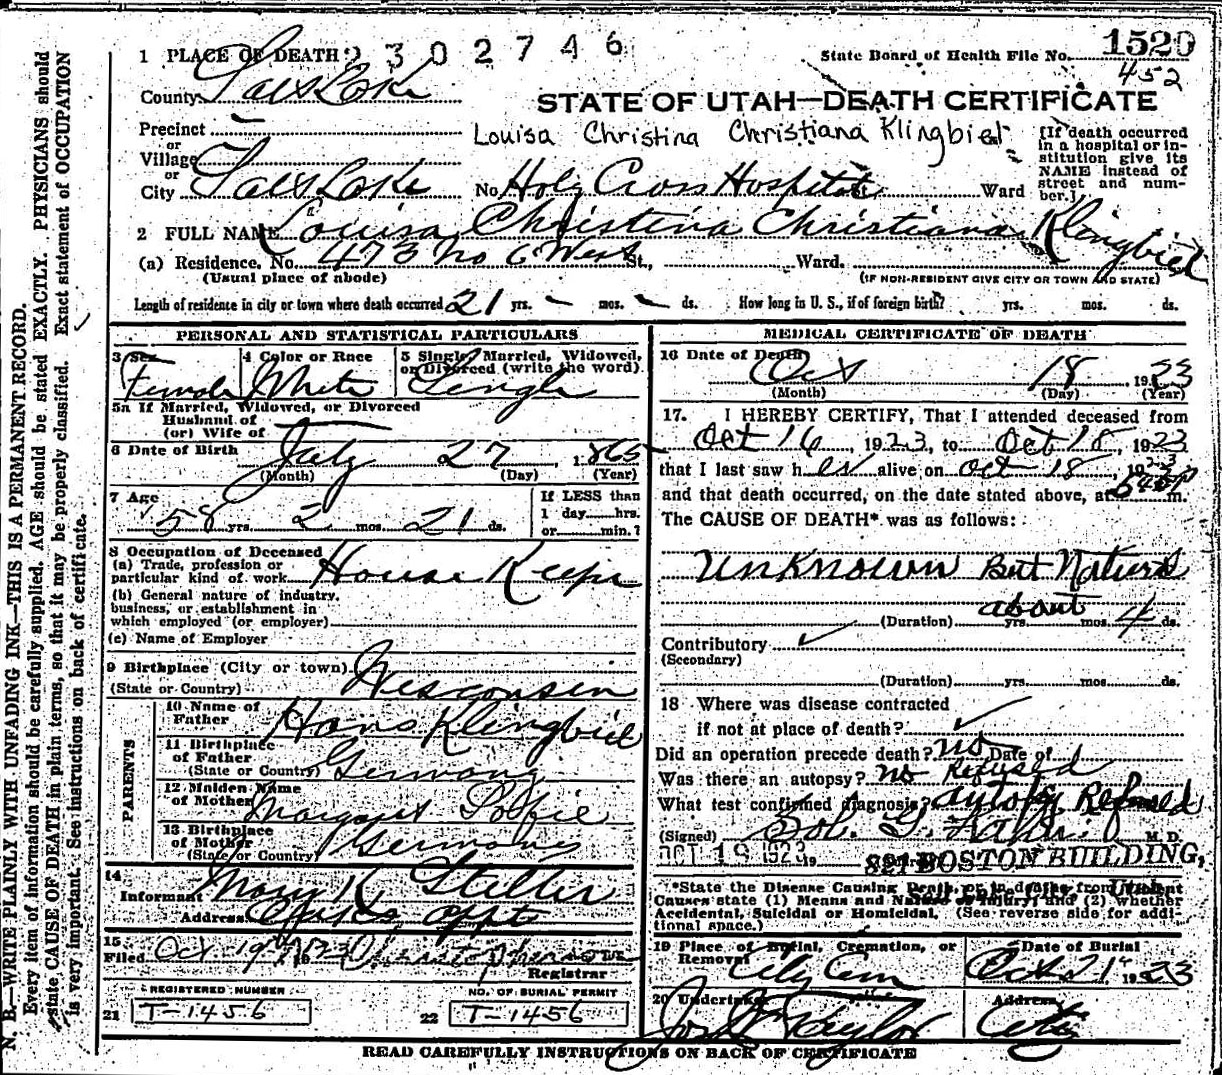 1 PLACE OF DEATH 2302746
State Board of Health File No. 1520
452
County Salt Lake
STATE OF UTAH—DEATH CERTIFICATE
Precinct
Louisa Christina Christiana Klingbiel
or
Village
or
City Salt Lake No. Holy Cross Hospital St. Ward
[If death occurred
in a hospital or in-
stitution give its
NAME instead of
street and num-
ber.]
2 FULL NAME Louisa Christina Christiana Klingbiel
(a) Residence. No. 473 No 6 West St., Ward.
(Usual place of abode) (IF NON-RESIDENT GIVE CITY OR TOWN AND STATE)
Length of residence in city or town where death occurred 21 yrs. – mos. – ds. How long in U. S., if of foreign birth? yrs. mos. ds.
PERSONAL AND STATISTICAL PARTICULARS
3 Sex Female
4 Color or Race White
5 Single, Married, Widowed,
or Divorced (write the word) Single
5a If Married, Widowed, or Divorced
Husband of
(or) Wife of
6 Date of Birth July 27, 1865
(Month) (Day) (Year)
7 Age 58 yrs. 2 mos. 21 ds.
If LESS than
1 day hrs.
or min.?
8 Occupation of Deceased
(a) Trade, profession or
particular kind of work House Keeper
(b) General nature of industry,
business, or establishment in
which employed (or employer)
(c) Name of Employer
9 Birthplace (City or town)
(State or Country) Wisconsin
PARENTS
10 Name of
Father Hans Klingbiel
11 Birthplace
of Father
(State or Country) Germany
12 Maiden Name
of Mother Margaret
13 Birthplace
of Mother
(State or Country) Germany
14
Informant Mary K Stelter
Address Appts
15
Filed Oct. 19, 1923
Registrar
REGISTERED NUMBER NO. OF BURIAL PERMIT
21 T-1456 22 T-1456
MEDICAL CERTIFICATE OF DEATH
16 Date of Death Oct 18, 1923
(Month) (Day) (Year)
17. I HEREBY CERTIFY, That I attended deceased from
Oct 16, 1923, to Oct 18, 1923
that I last saw her alive on Oct 18, 1923
and that death occurred, on the date stated above, at m.
The CAUSE OF DEATH* was as follows:
Unknown But Natural
about
(Duration) yrs. mos. 4 ds.
Contributory
(Secondary)
(Duration) yrs. mos. ds.
18 Where was disease contracted
if not at place of death?
Did an operation precede death? no Date of
Was there an autopsy? no Refused
What test confirmed diagnosis? autopsy Refused
(Signed) Sol. G. Kahn M. D.
OCT 19 1923 821 BOSTON BUILDING,
*State the Disease Causing Death, or in deaths from Violent
Causes state (1) Means and Nature of Injury; and (2) whether
Accidental, Suicidal or Homicidal. (See reverse side for addi-
tional space.)
19 Place of Burial, Cremation, or
Removal City Cem
Date of Burial
Oct 21, 1923
20 Undertaker Jos Wm Taylor
Address City
READ CAREFULLY INSTRUCTIONS ON BACK OF CERTIFICATE
N. B.—WRITE PLAINLY WITH UNFADING INK—THIS IS A PERMANENT RECORD.
Every item of information should be carefully supplied. AGE should be stated EXACTLY. PHYSICIANS should
state CAUSE OF DEATH in plain terms, so that it may be properly classified. Exact statement of OCCUPATION
is very important. See instructions on back of certificate.